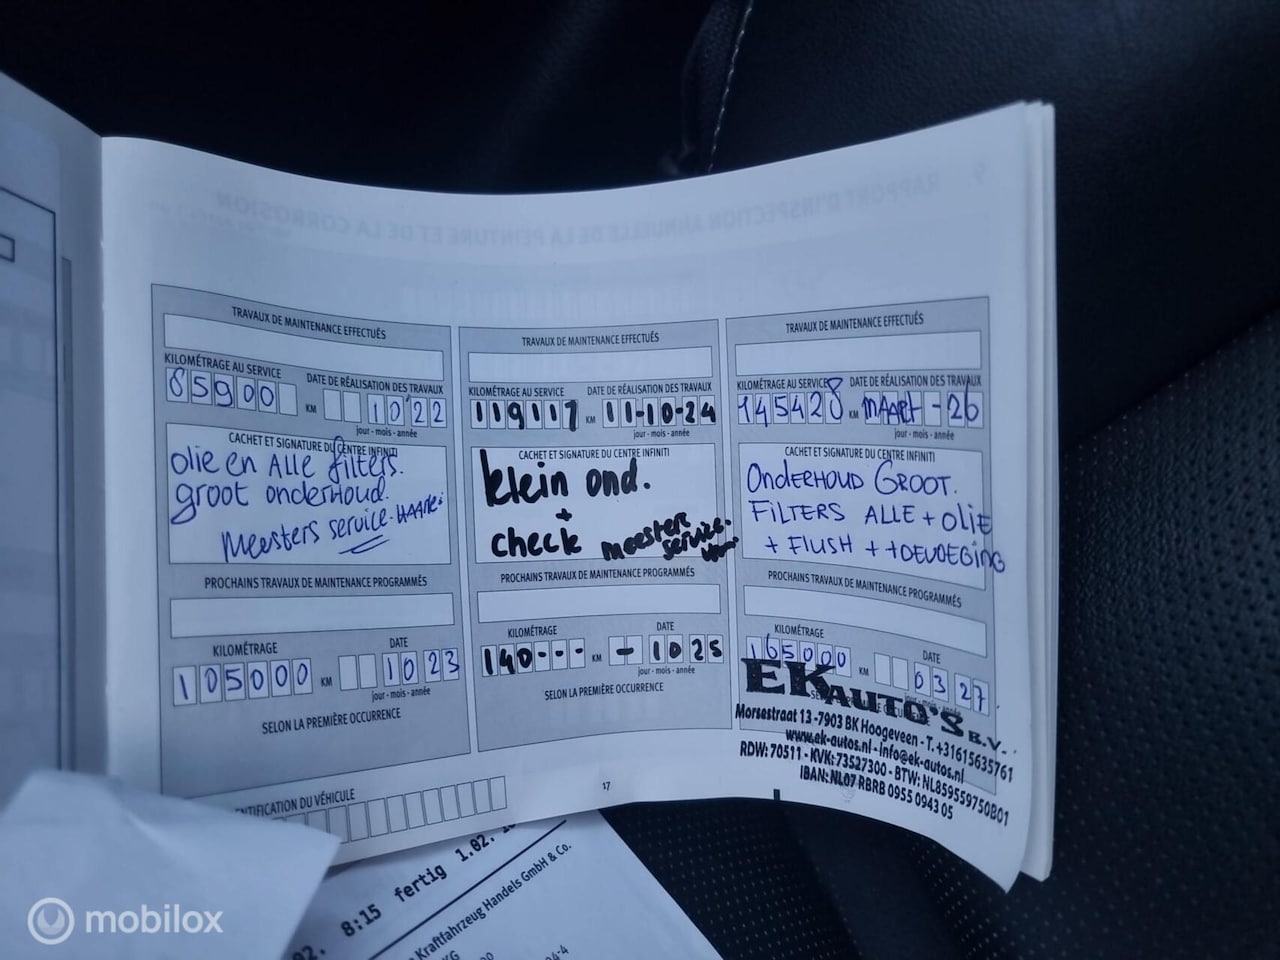 9. RAPPORT D'INSPECTION ANNUELLE DE LA PEINTURE ET DE LA CORROSION
TRAVAUX DE MAINTENANCE EFFECTUÉS
KILOMÉTRAGE AU SERVICE
DATE DE RÉALISATION DES TRAVAUX
85900 KM 10'22
jour - mois - année
CACHET ET SIGNATURE DU CENTRE INFINITI
olie en ALLE filters.
groot onderhoud.
Meesters service.
PROCHAINS TRAVAUX DE MAINTENANCE PROGRAMMÉS
KILOMÉTRAGE DATE
105000 KM 1023
jour - mois - année
SELON LA PREMIÈRE OCCURRENCE
TRAVAUX DE MAINTENANCE EFFECTUÉS
KILOMÉTRAGE AU SERVICE DATE DE RÉALISATION DES TRAVAUX
119117 KM 11-10-24
jour - mois - année
CACHET ET SIGNATURE DU CENTRE INFINITI
klein ond.
+
check meesters
service.
PROCHAINS TRAVAUX DE MAINTENANCE PROGRAMMÉS
KILOMÉTRAGE DATE
140--- KM -1025
jour - mois - année
SELON LA PREMIÈRE OCCURRENCE
TRAVAUX DE MAINTENANCE EFFECTUÉS
KILOMÉTRAGE AU SERVICE DATE DE RÉALISATION DES TRAVAUX
145428 KM MAART-26
jour - mois - année
CACHET ET SIGNATURE DU CENTRE INFINITI
ONDERHOUD GROOT.
FILTERS ALLE + OLIE
+ FLUSH + +OEVOEGING
PROCHAINS TRAVAUX DE MAINTENANCE PROGRAMMÉS
KILOMÉTRAGE DATE
165000 KM 0327
EK AUTO'S B.V.
Morsestraat 13 - 7903 BK Hoogeveen - T. +31615635761
www.ek-autos.nl - info@ek-autos.nl
RDW: 70511 - KVK: 73527300 - BTW: NL859559750B01
IBAN: NL07 RBRB 0955 0943 05
ENTIFICATION DU VÉHICULE
17
02. 8:15 fertig 1.02.
Kraftfahrzeug Handels GmbH & Co.
KG
mobilox